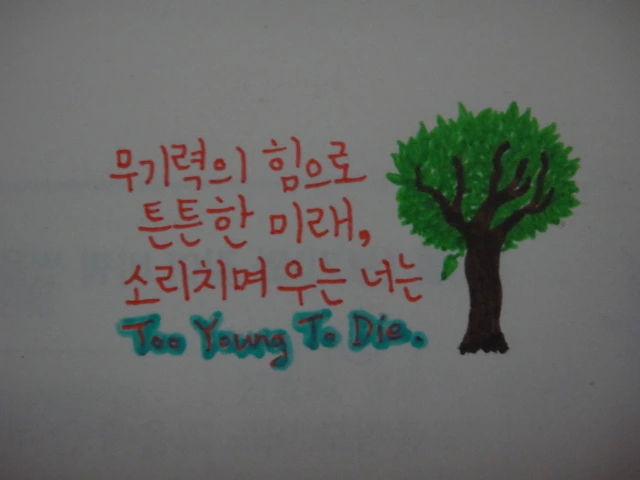 무기력의 힘으로
튼튼한 미래,
소리치며 우는 너는
Too Young To Die.